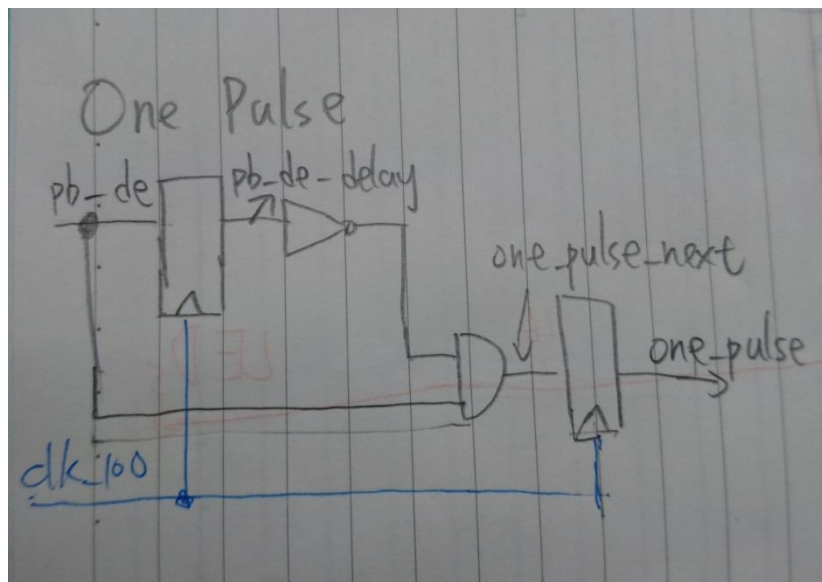 One Pulse
pb_de
pb_de_delay
one_pulse_next
one_pulse
clk_100